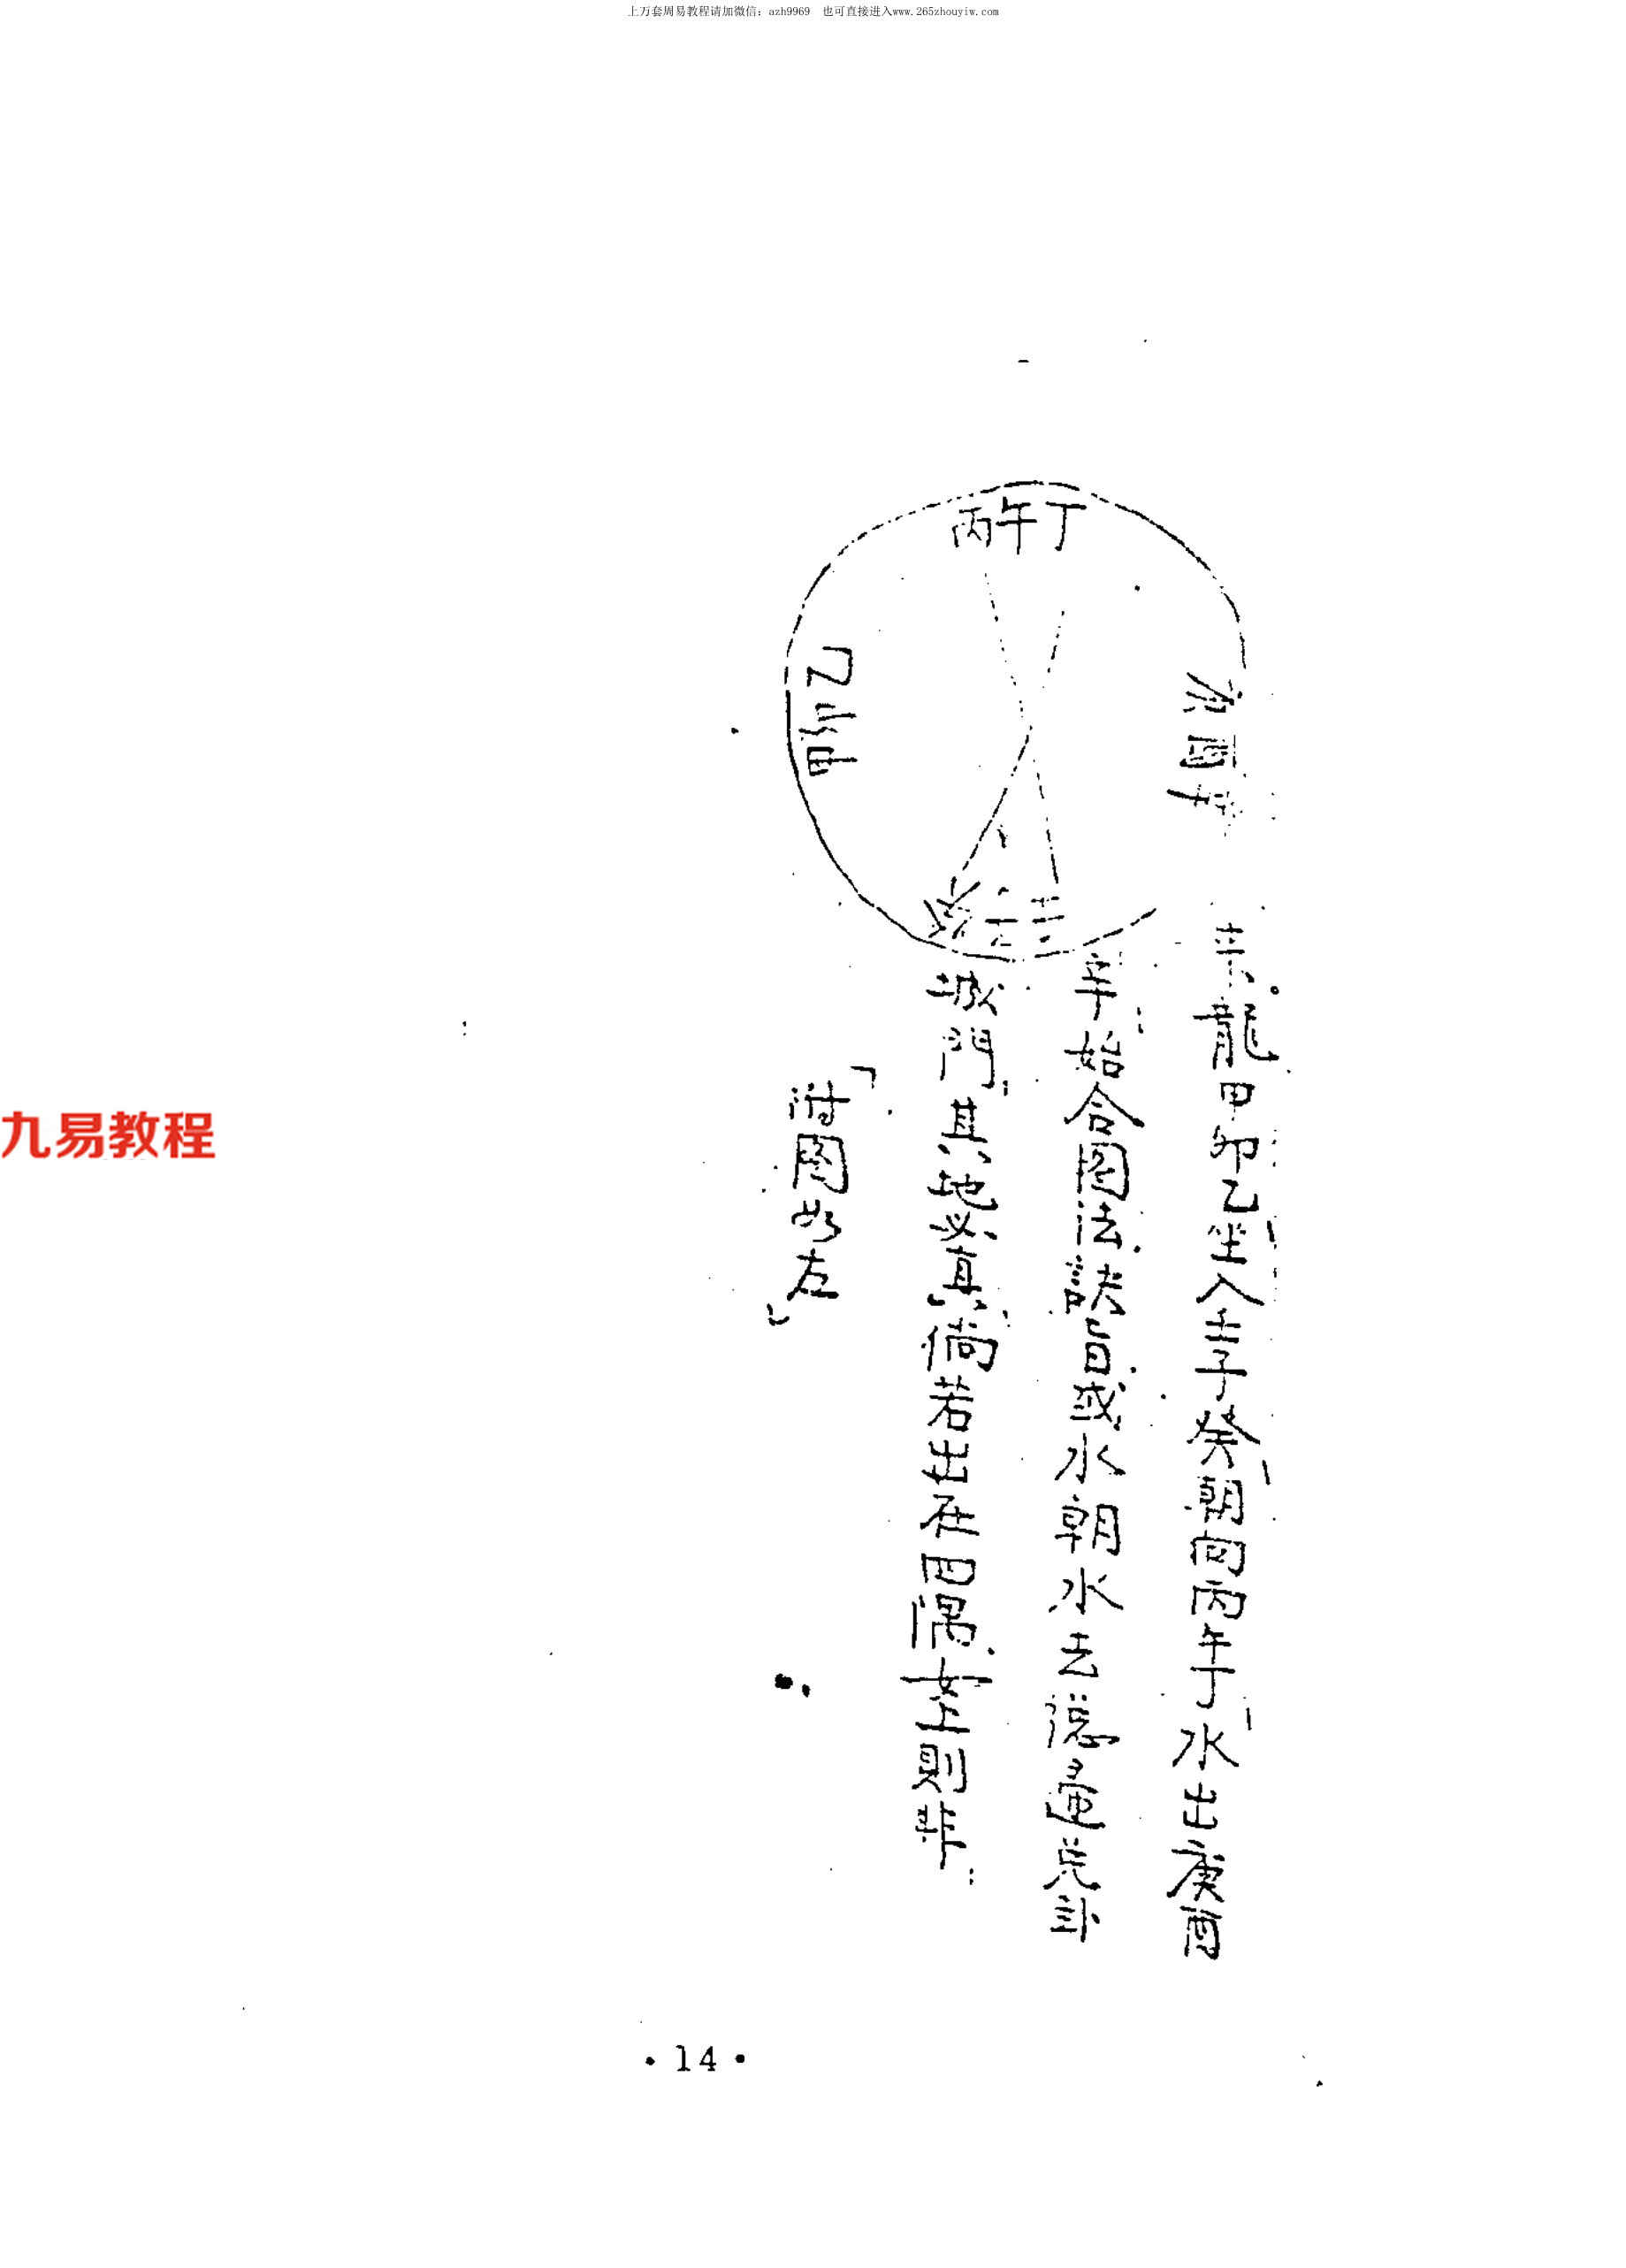 上万套周易教程请加微信：azh9969 也可直接进入www.265zhouyiw.com
丙午丁
乙卯甲
來龍甲卯乙坐入壬子癸朝向丙午丁水出庚酉
辛始合图法訣旨或水朝水去總是兑卦
城門其地必真倘若出在四隅 則非
「附图如左」
九易教程
·14·